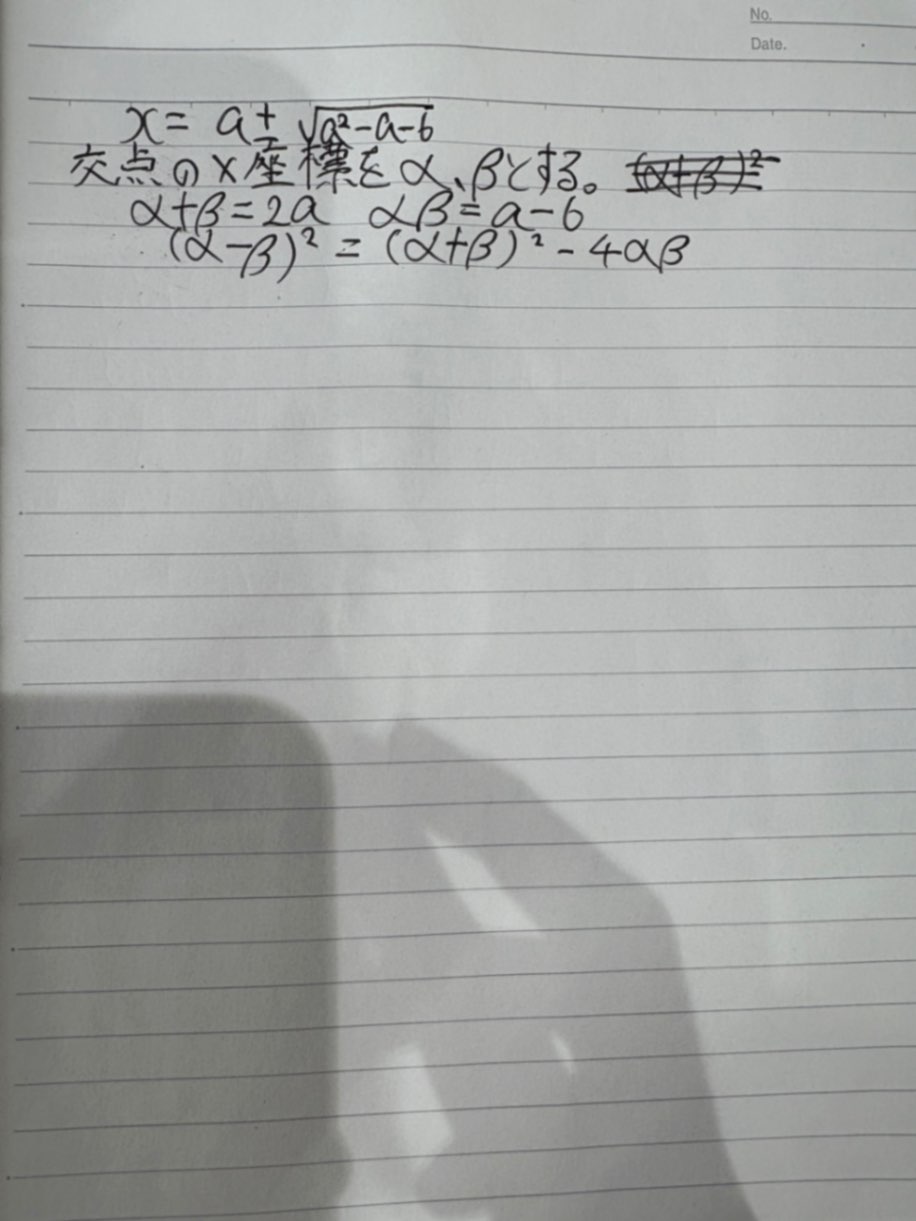 No.
Date.
x = a ± √a²-a-6
交点のx座標をα、βとする。 (α+β)²
α+β=2a αβ=a-6
(α-β)² = (α+β)² - 4αβ